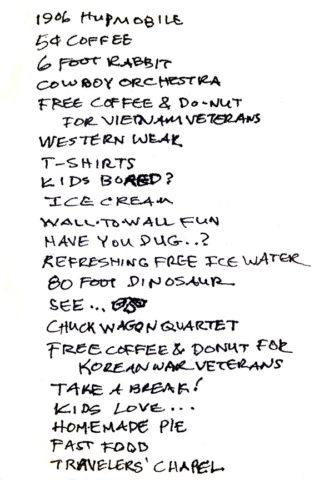 1906 HUPMOBILE
5¢ COFFEE
6 FOOT RABBIT
COWBOY ORCHESTRA
FREE COFFEE & DO-NUT
FOR VIETNAM VETERANS
WESTERN WEAR
T-SHIRTS
KIDS BORED?
ICE CREAM
WALL-TO-WALL FUN
HAVE YOU DUG..?
REFRESHING FREE ICE WATER
80 FOOT DINOSAUR
SEE...
CHUCK WAGON QUARTET
FREE COFFEE & DONUT FOR
KOREAN WAR VETERANS
TAKE A BREAK!
KIDS LOVE...
HOMEMADE PIE
FAST FOOD
TRAVELERS' CHAPEL